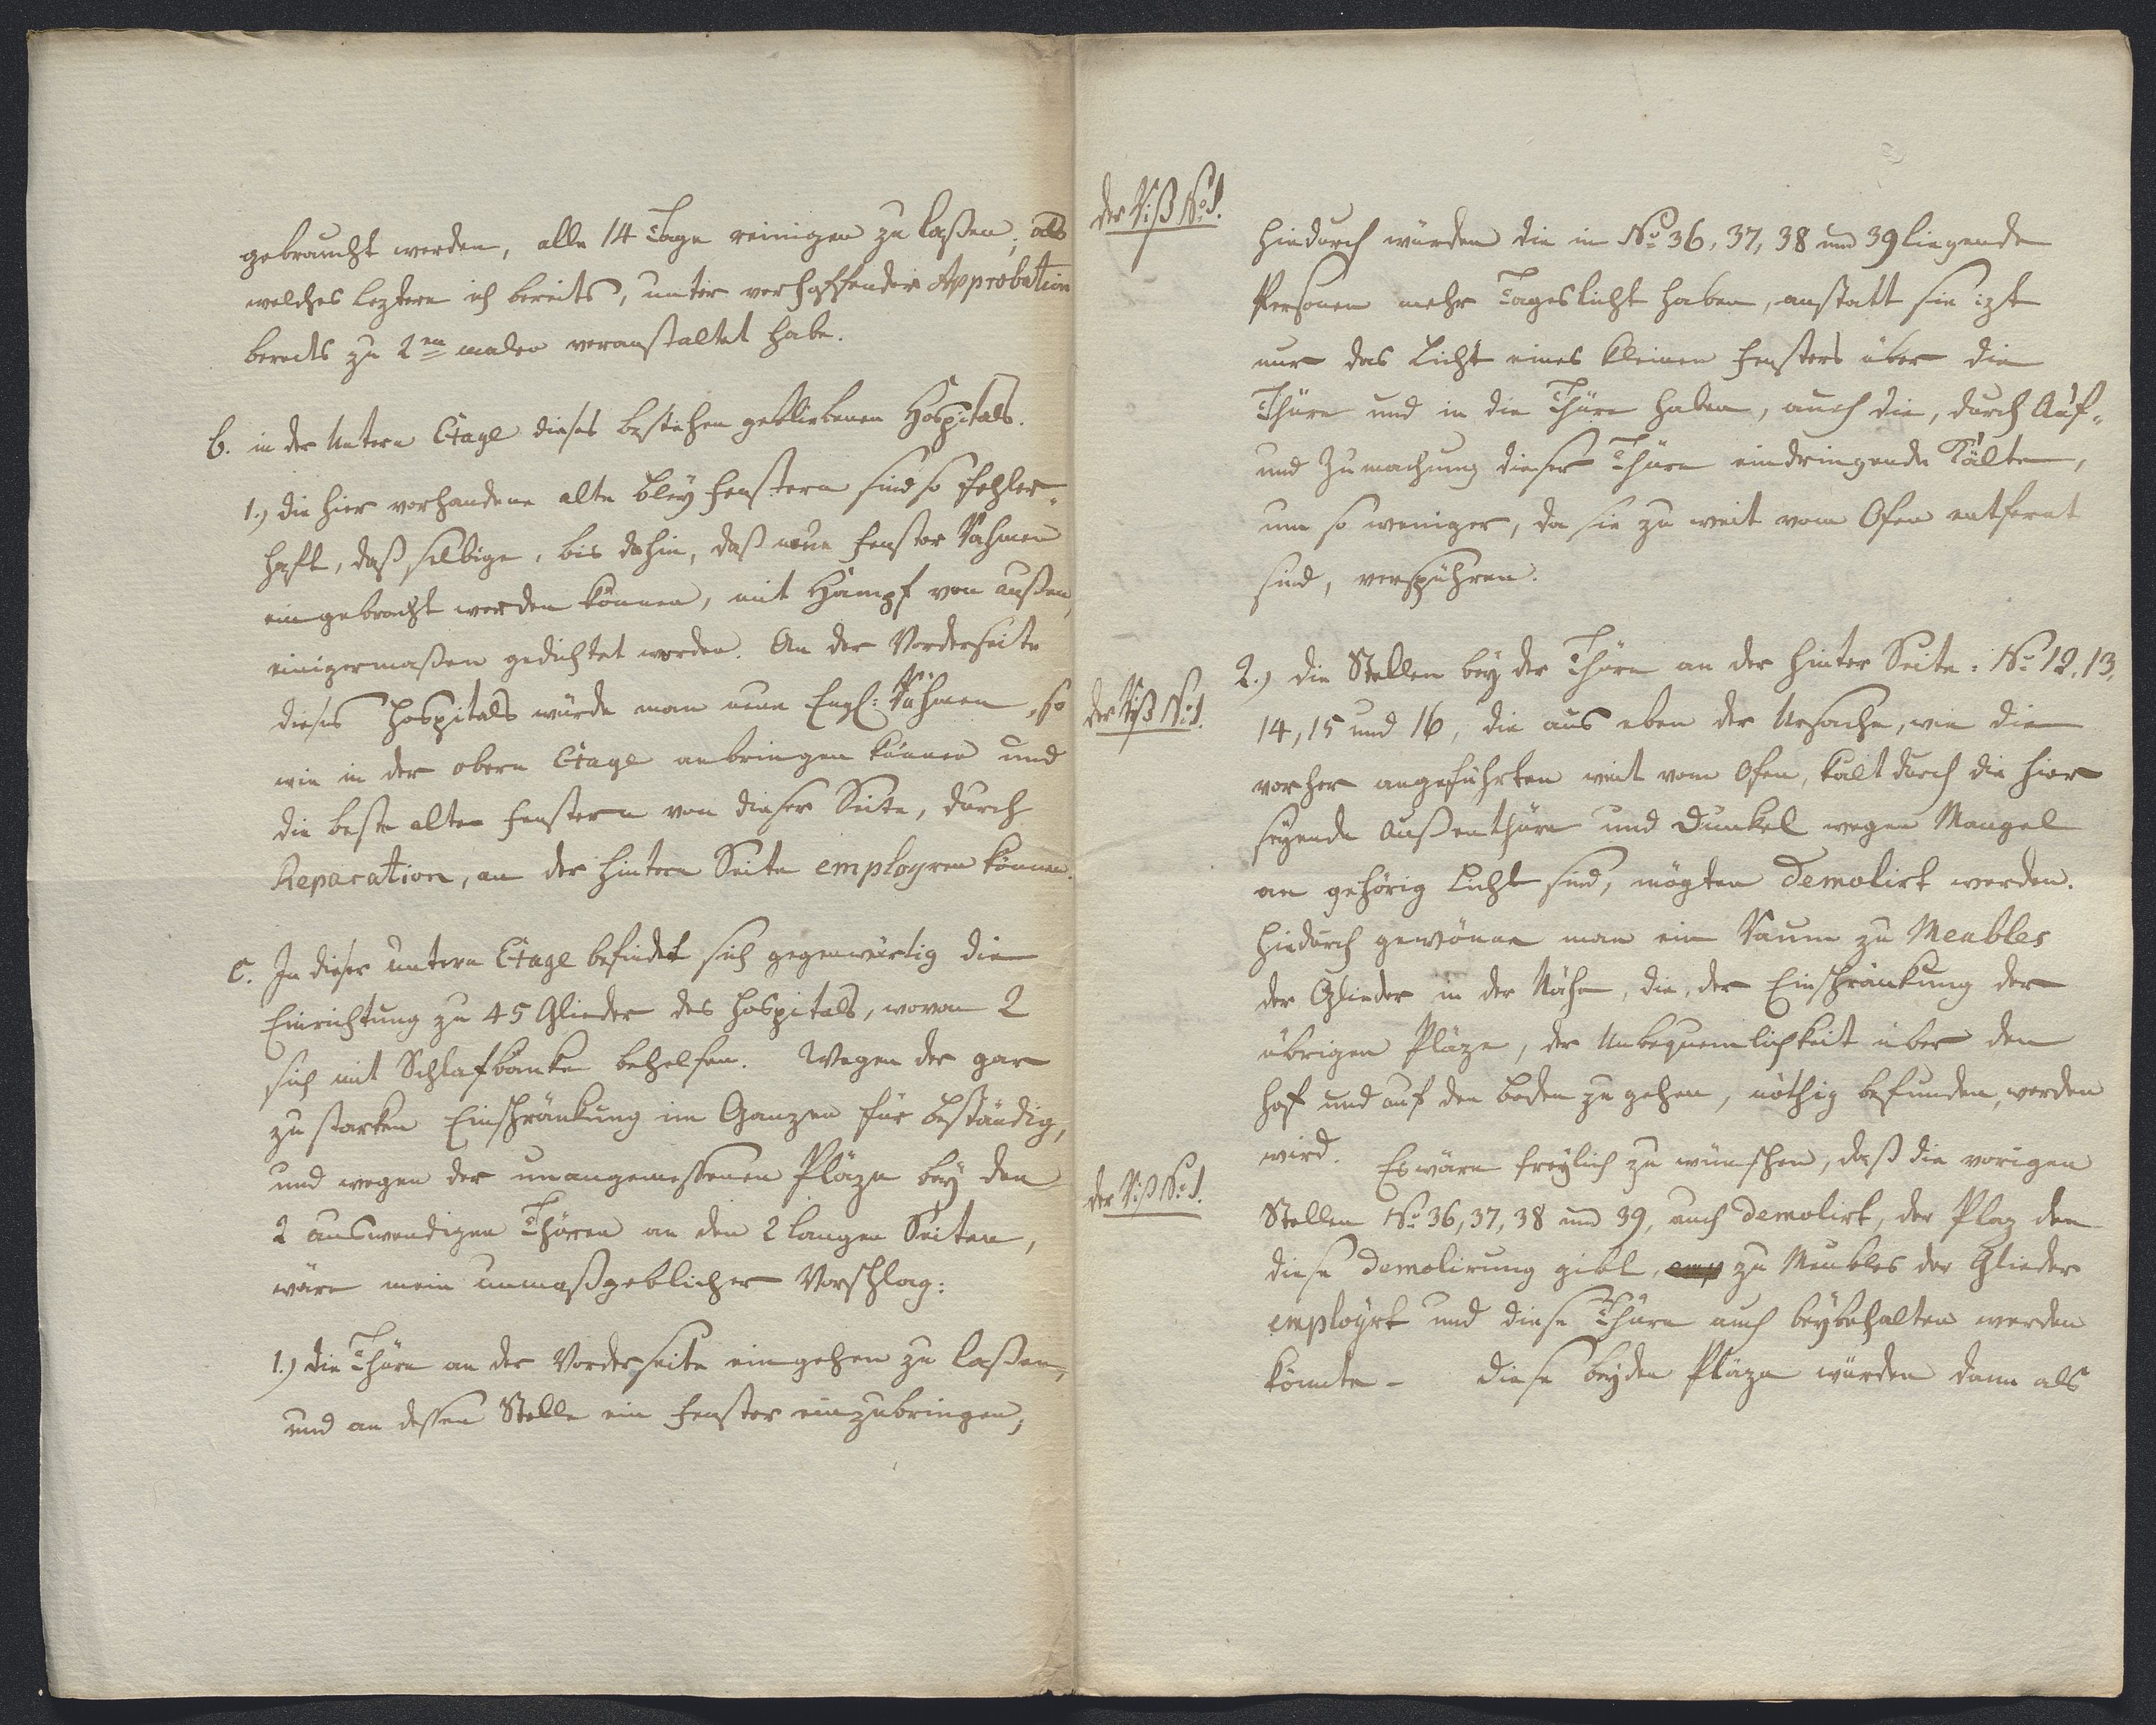 gebraucht werden, alle 14 Tage reinigen zu laßen; als
welches leztere ich bereits, unter verhoffender Approbation
bereits zu 2ten malen veranstaltet habe.
b. in der Untern Etage dieses bestehen gebliebenen Hospitals.
1.) die hier vorhandene alte Bley Fenstern sind so fehler-
haft, daß selbige, bis dahin, daß neue Fenster Rahmen
eingebracht werden können, mit Hampf von außen,
einigermaßen gedichtet worden. An der Vorderseite
dieses Hospitals würde man neue Engl: Rahmen, so
wie in der obern Etage anbringen können und
die beste alten Fenstern von dieser Seite, durch
Reparation, an der hintern Seite employren können.
c. In dieser untern Etage befindet sich gegenwärtig die
Einrichtung zu 45 Glieder des Hospitals, wovon 2
sich mit Schlafbänke behelfen. Wegen der gar
zu starken Einschränkung im Ganzen für beständig,
und wegen der unangemessenen Pläze bey den
2 auswendigen Thüren an den 2 langen Seiten,
wäre mein unmaßgeblicher Vorschlag:
1.) die Thüre an der Vorderseite eingehen zu laßen,
und an dessen Stelle ein Fenster einzubringen,
der Riß No 1.
hiedurch würden die in No 36, 37, 38 und 39 liegende
Personen mehr Tageslicht haben, anstatt sie izt
nur das Licht eines kleinen Fensters über die
Thüre und in die Thüre haben, auch die, durch Auf-
und Zumachung dieser Thüre eindringende Kälte,
um so weniger, da sie zu weit vom Ofen entfernt
sind, verspühren.
2.) die Stellen bey der Thüre an der hinter Seite: No 12, 13,
der Riß No 1.
14, 15 und 16, die aus eben der Ursache, wie die
vorher angeführten weit vom Ofen, kalt durch die hier
seyende Außenthüre und Dunkel wegen Mangel
an gehörig Licht sind, mögten demolirt werden.
Hiedurch gewönne man ein Raum zu Meubles
der Glieder in der Nähe, die, der Einschränkung der
übrigen Pläze, der Unbequemlichkeit über den
Hof und auf den Boden zu gehen, nöthig befunden, werden
wird. Es wäre freylich zu wünschen, daß die vorigen
der Riß No 1.
Stellen No 36, 37, 38 und 39, auch demolirt, der Plaz den
diese Demolirung gibt, emp zu Meubles der Glieder
employrt und diese Thüre auch beybehalten werden
könnte – Diese beyden Pläze würden dann als